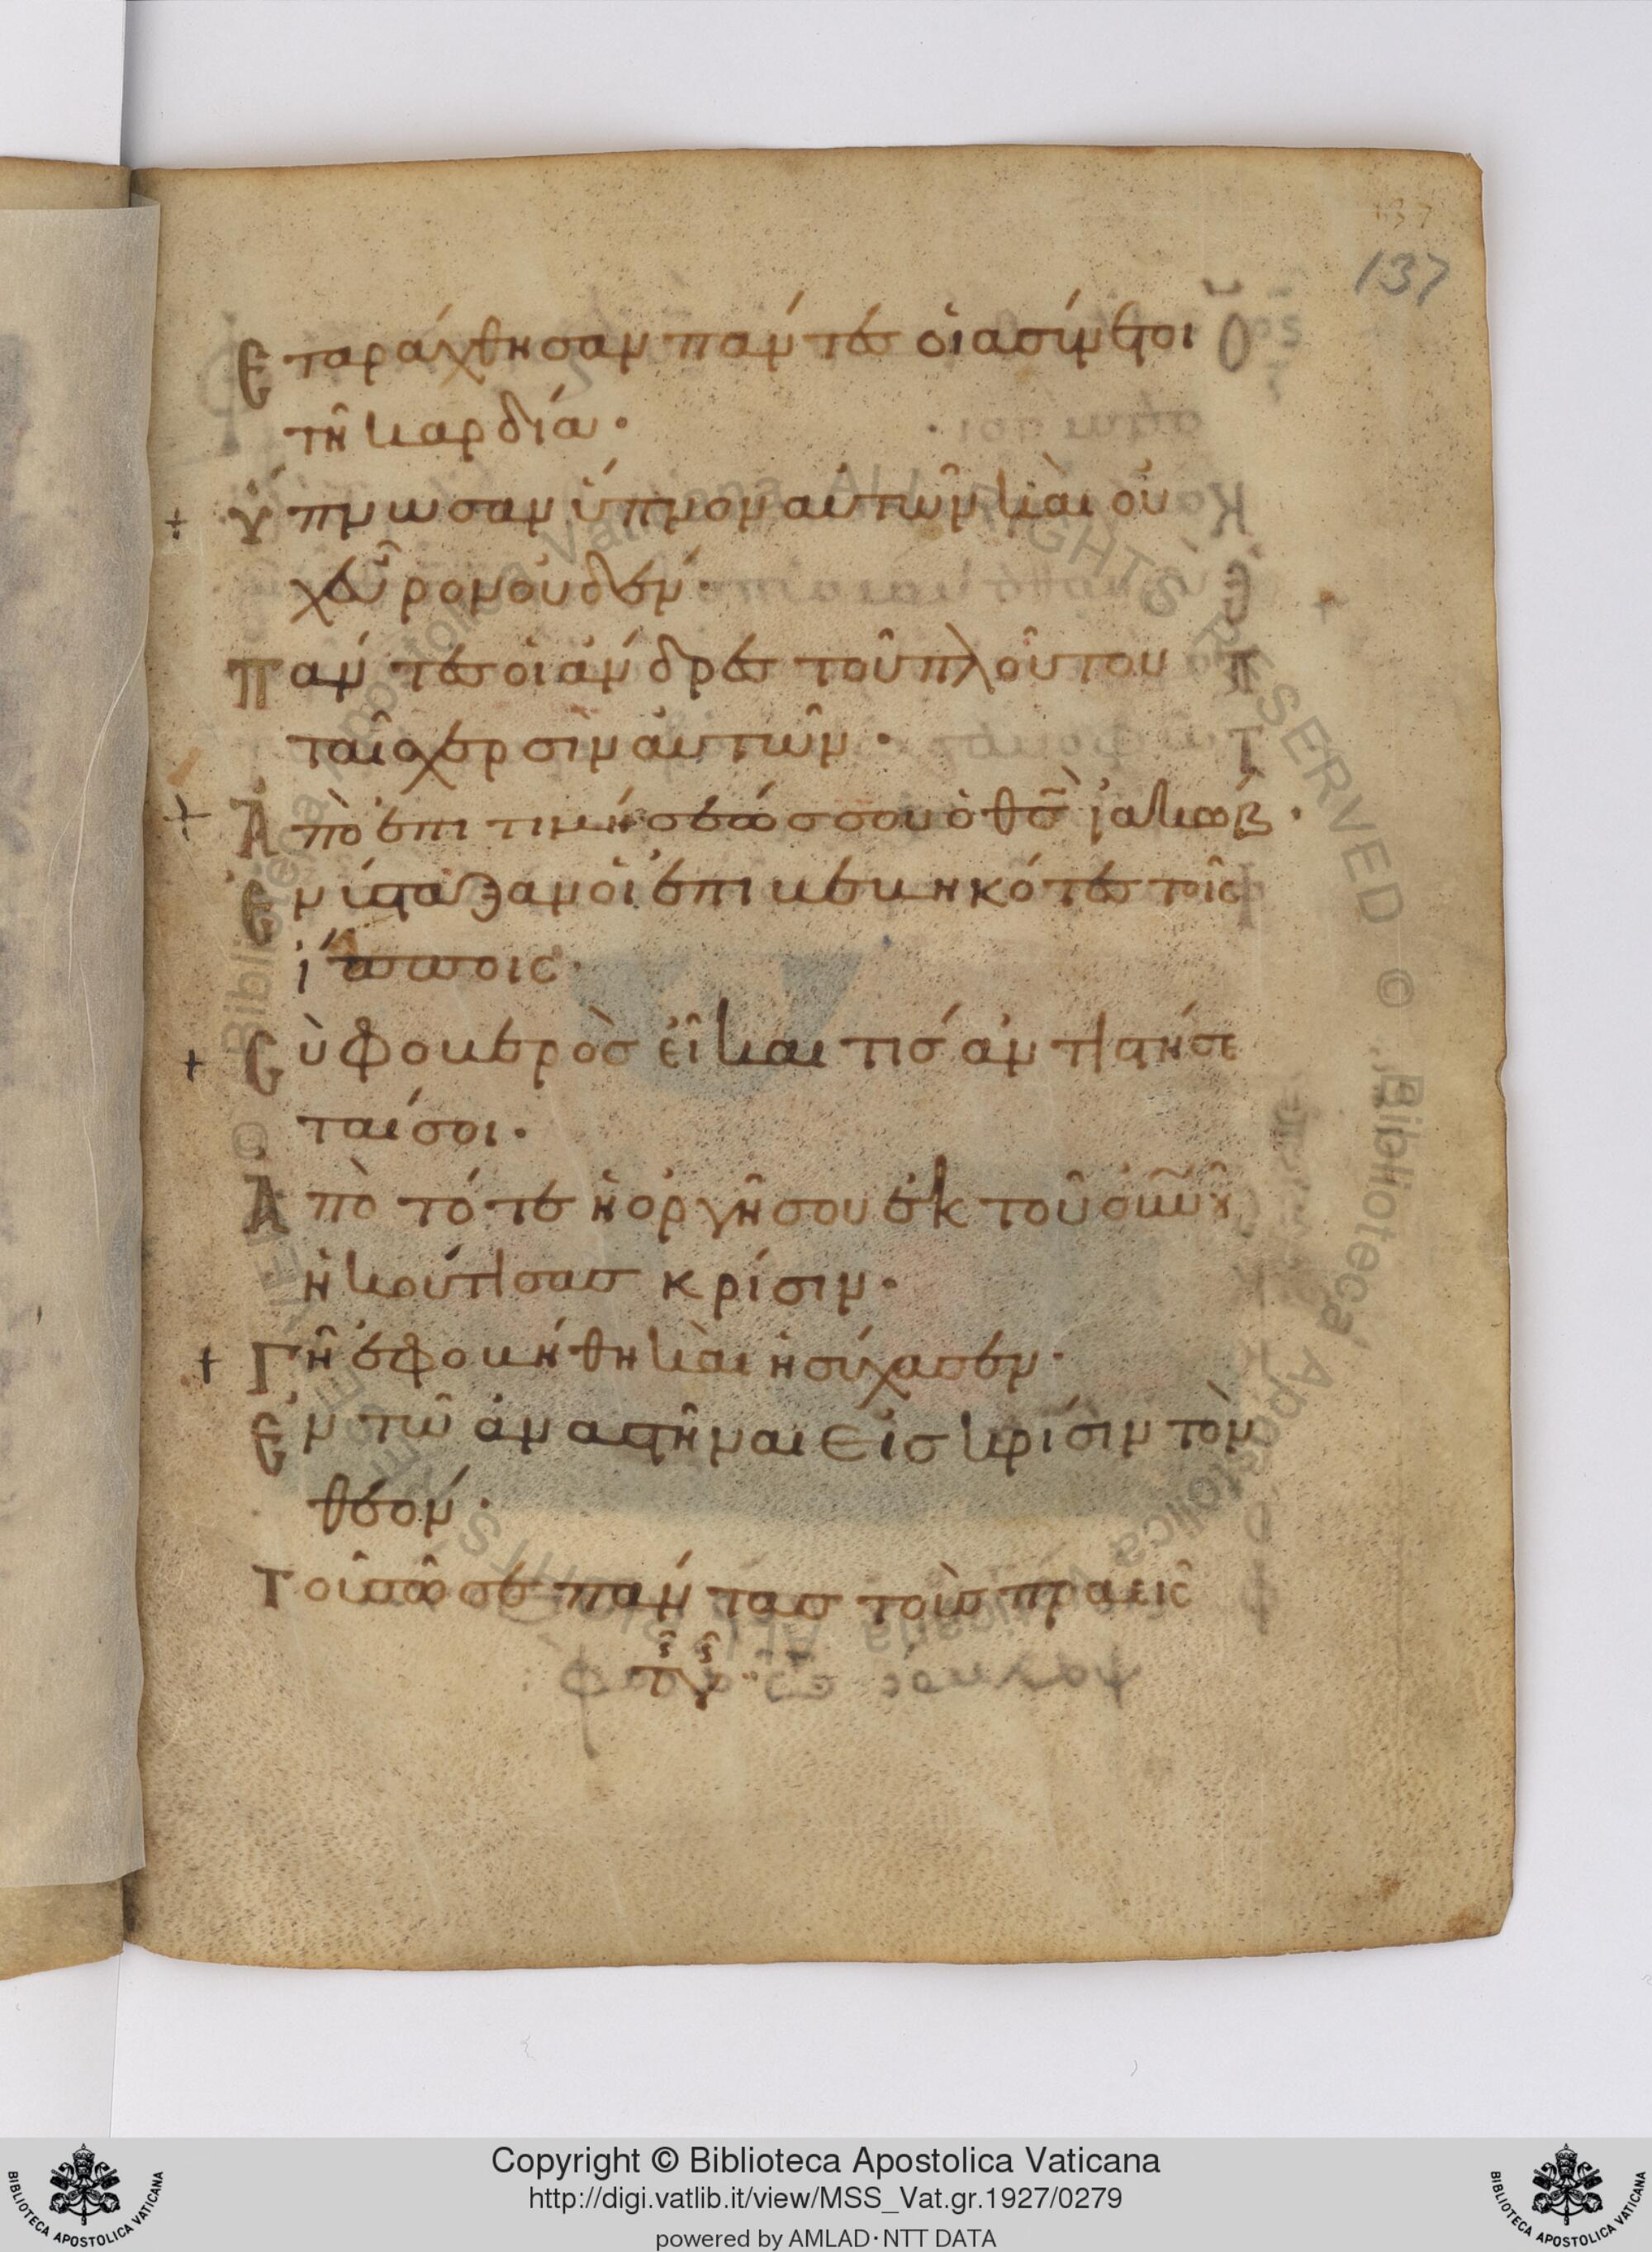 137
137
Ἐταράχθησαν πάντες οἱ ἀσύνετοι
τῆ καρδία·
+ Ὕπνωσαν ὕπνον αὐτῶν καὶ οὐ
χεῦρον οὐδέν·
Πάντες οἱ ἄνδρες τοῦ πλούτου
ταῖς χερσὶν αὐτῶν·
+ Ἀπὸ ἐπιτιμήσεώς σου ὁ θς̅ ἰακώβ·
Ἐνύσταξαν οἱ ἐπιβεβηκότες τοῖς
ἵπποις·
+ Σὺ φοβερὸς εἶ καὶ τίς ἀντιστήσε
ταί σοι·
Ἀπὸ τότε ἡ ὀργῆ σου ἐκ τοῦ οὐνου̅
ἠκούτισας κρίσιν·
+ Γῆ ἐφοβήθη καὶ ἡσύχασεν·
Ἐν τῶ ἀναστῆναι εἰς κρίσιν τὸν
θεόν·
Τοῦ σῶσαι πάντας τοὺς πραεῖς
τῆς γῆς·
Copyright © Biblioteca Apostolica Vaticana
http://digi.vatlib.it/view/MSS_Vat.gr.1927/0279
powered by AMLAD·NTT DATA
BIBLIOTECA APOSTOLICA VATICANA
BIBLIOTECA APOSTOLICA VATICANA